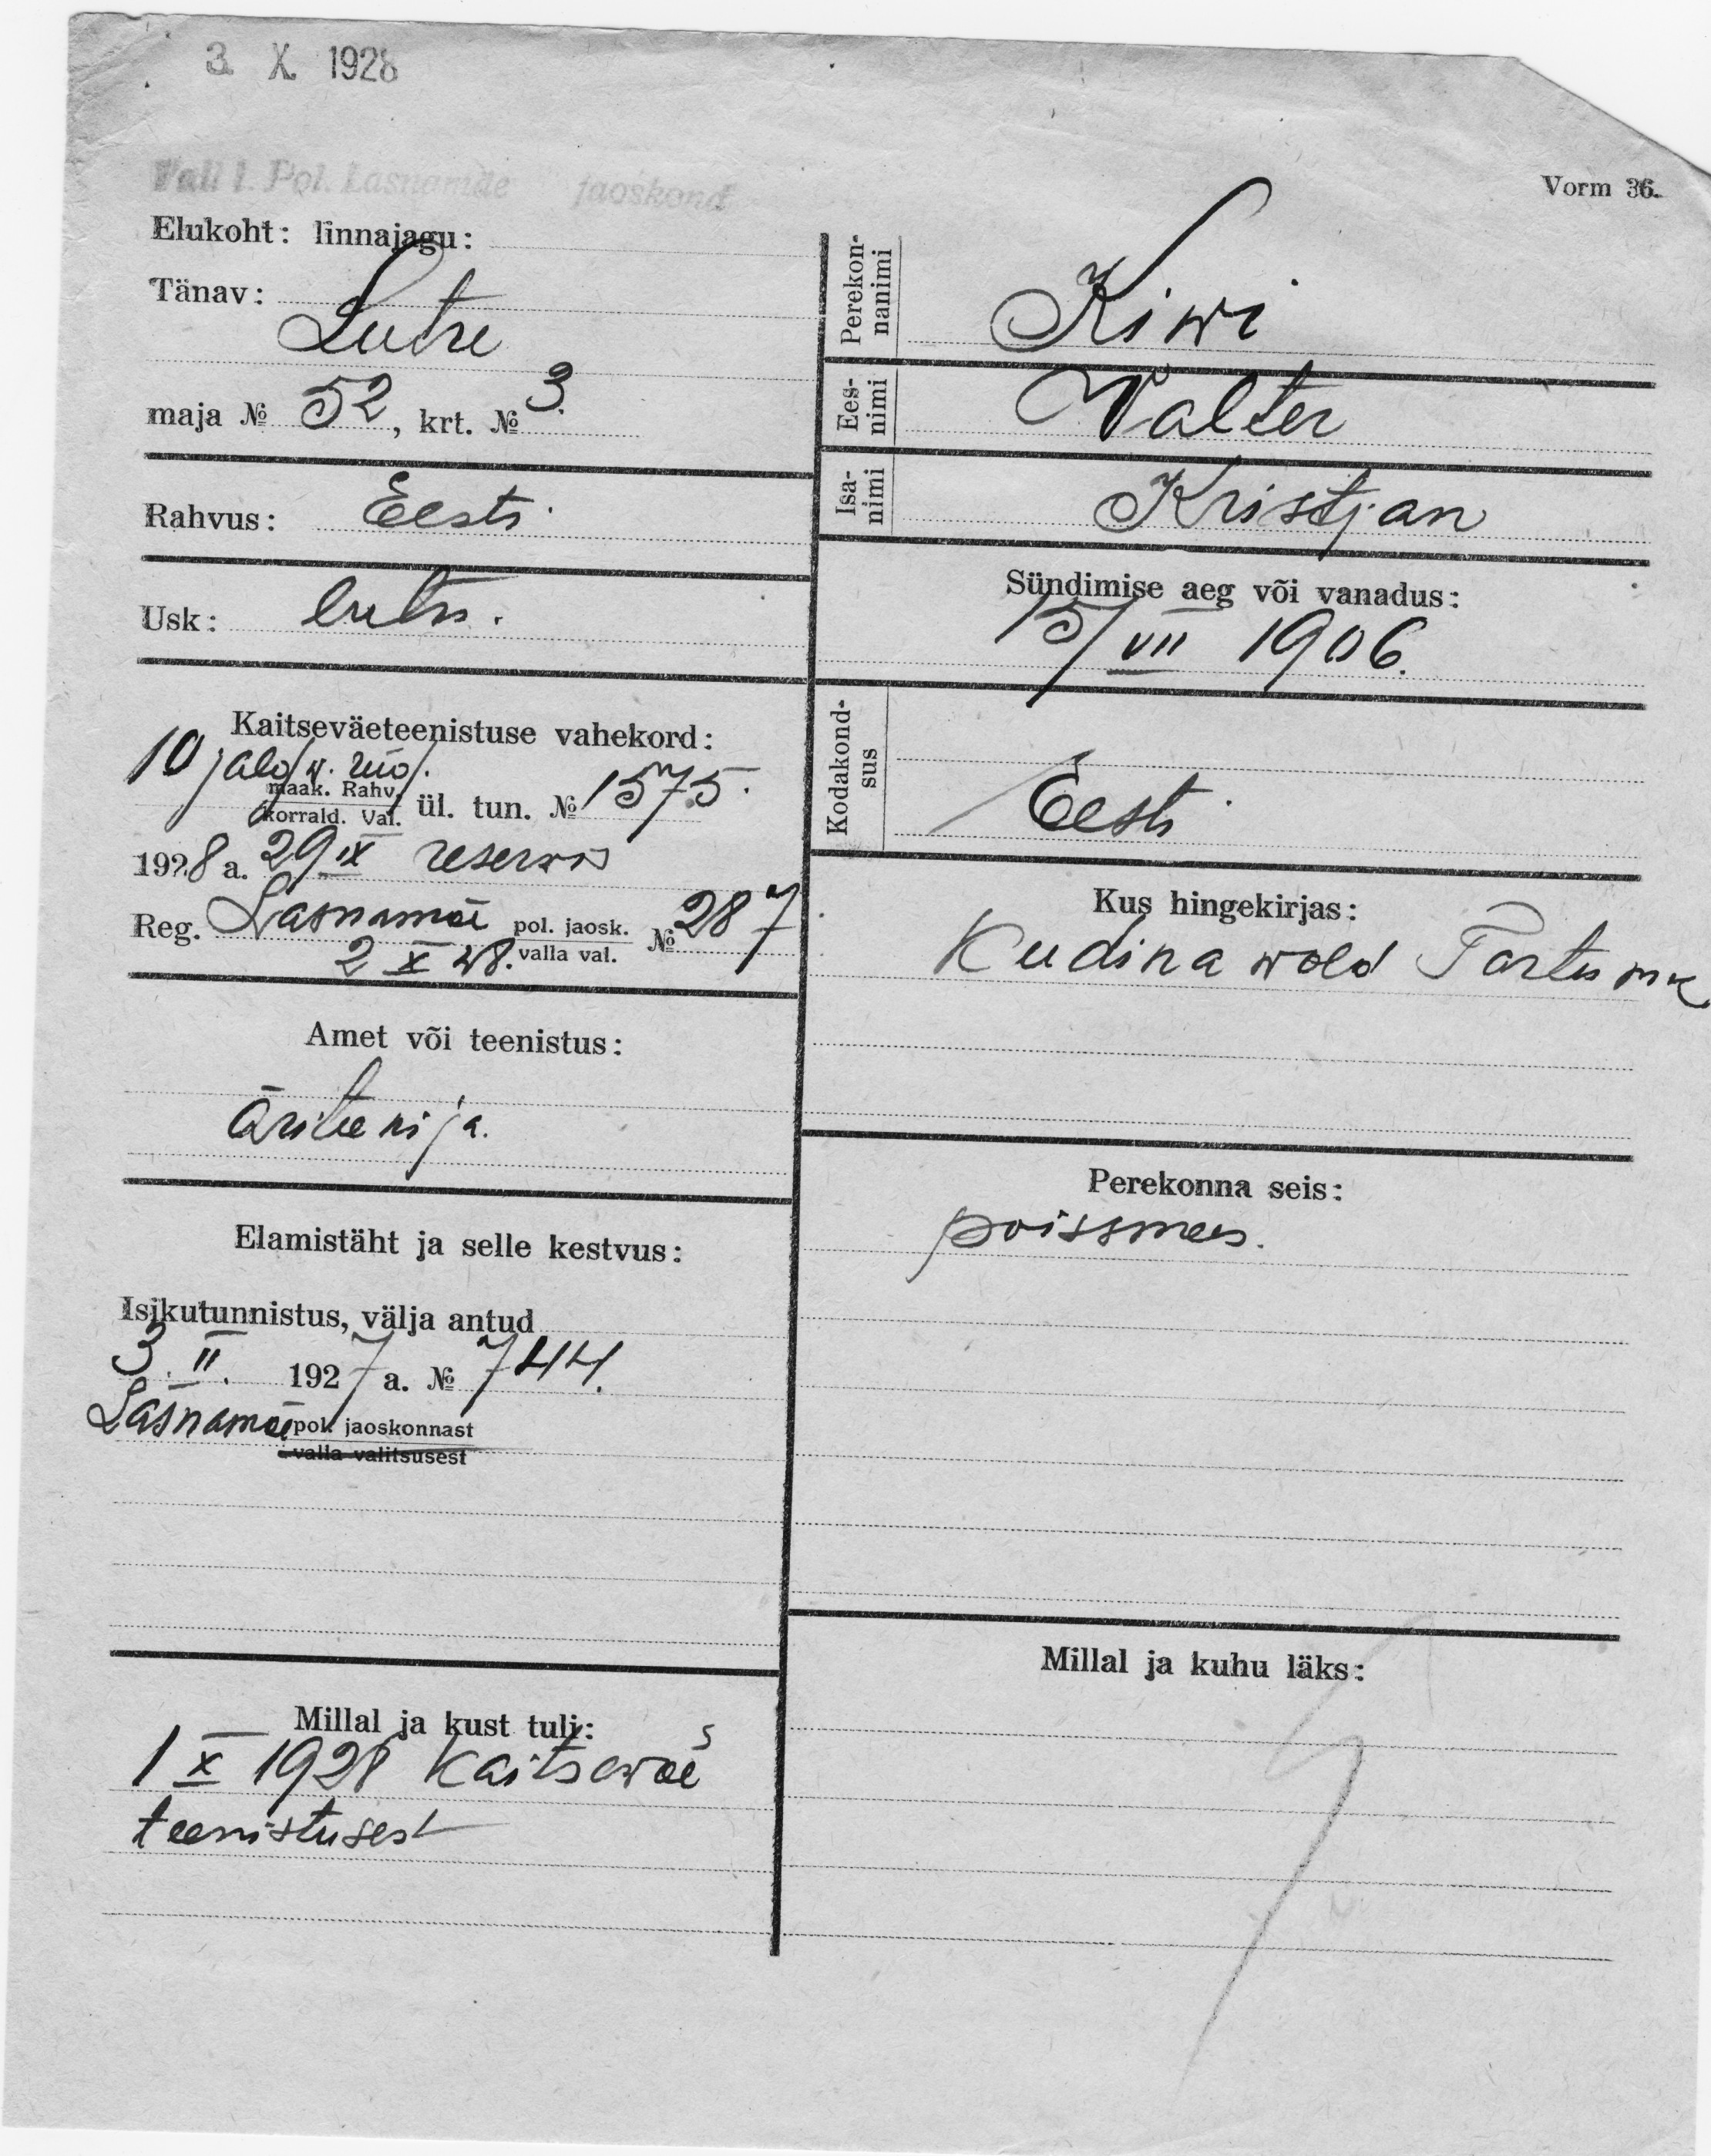 3. X. 1928
Tall l. Pol. Lasnamäe jaoskond
Vorm 36.
Elukoht: linnajagu:
Tänav:
Lutre
maja № 52, krt. № 3.
Rahvus: Eesti.
Usk: luts.
Kaitseväeteenistuse vahekord:
10 jalaw. rüg.
maak. Rahv.
korrald. Val. ül. tun. № 1575.
1928 a. 29 IX reserwis
Reg. Lasnamäe pol. jaosk. № 287
2 X 28. valla val.
Amet või teenistus:
Äriteenija.
Elamistäht ja selle kestvus:
Isikutunnistus, välja antud
3. II. 1927 a. № 744.
Lasnamäe pol. jaoskonnast
valla valitsusest
Millal ja kust tuli:
1 X 1928 Kaitsewäe
teenistusest
Perekonnanimi Kiwi
Eesnimi Valter
Isanimi Kristjan
Sündimise aeg või vanadus:
15/VII 1906.
Kodakondsus
Eesti
Kus hingekirjas:
Kudina wald Tartu mk
Perekonna seis:
poissmees.
Millal ja kuhu läks: